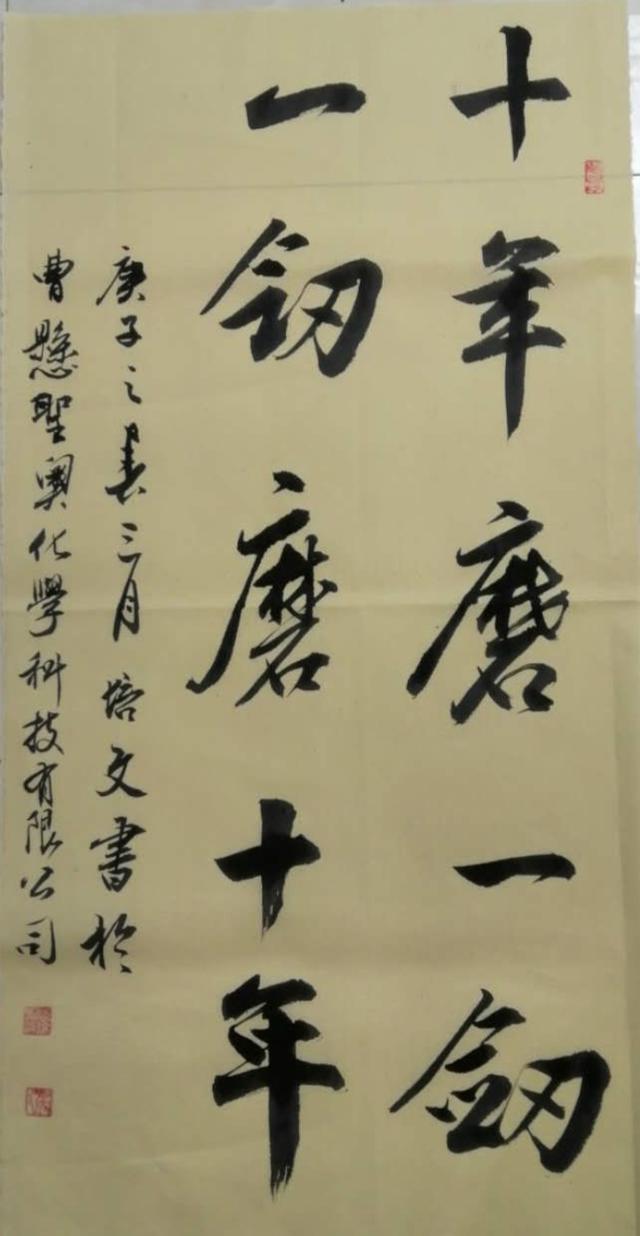 十年磨一劒
一劒磨十年
庚子之春三月培文書於
曹縣聖奧化學科技有限公司